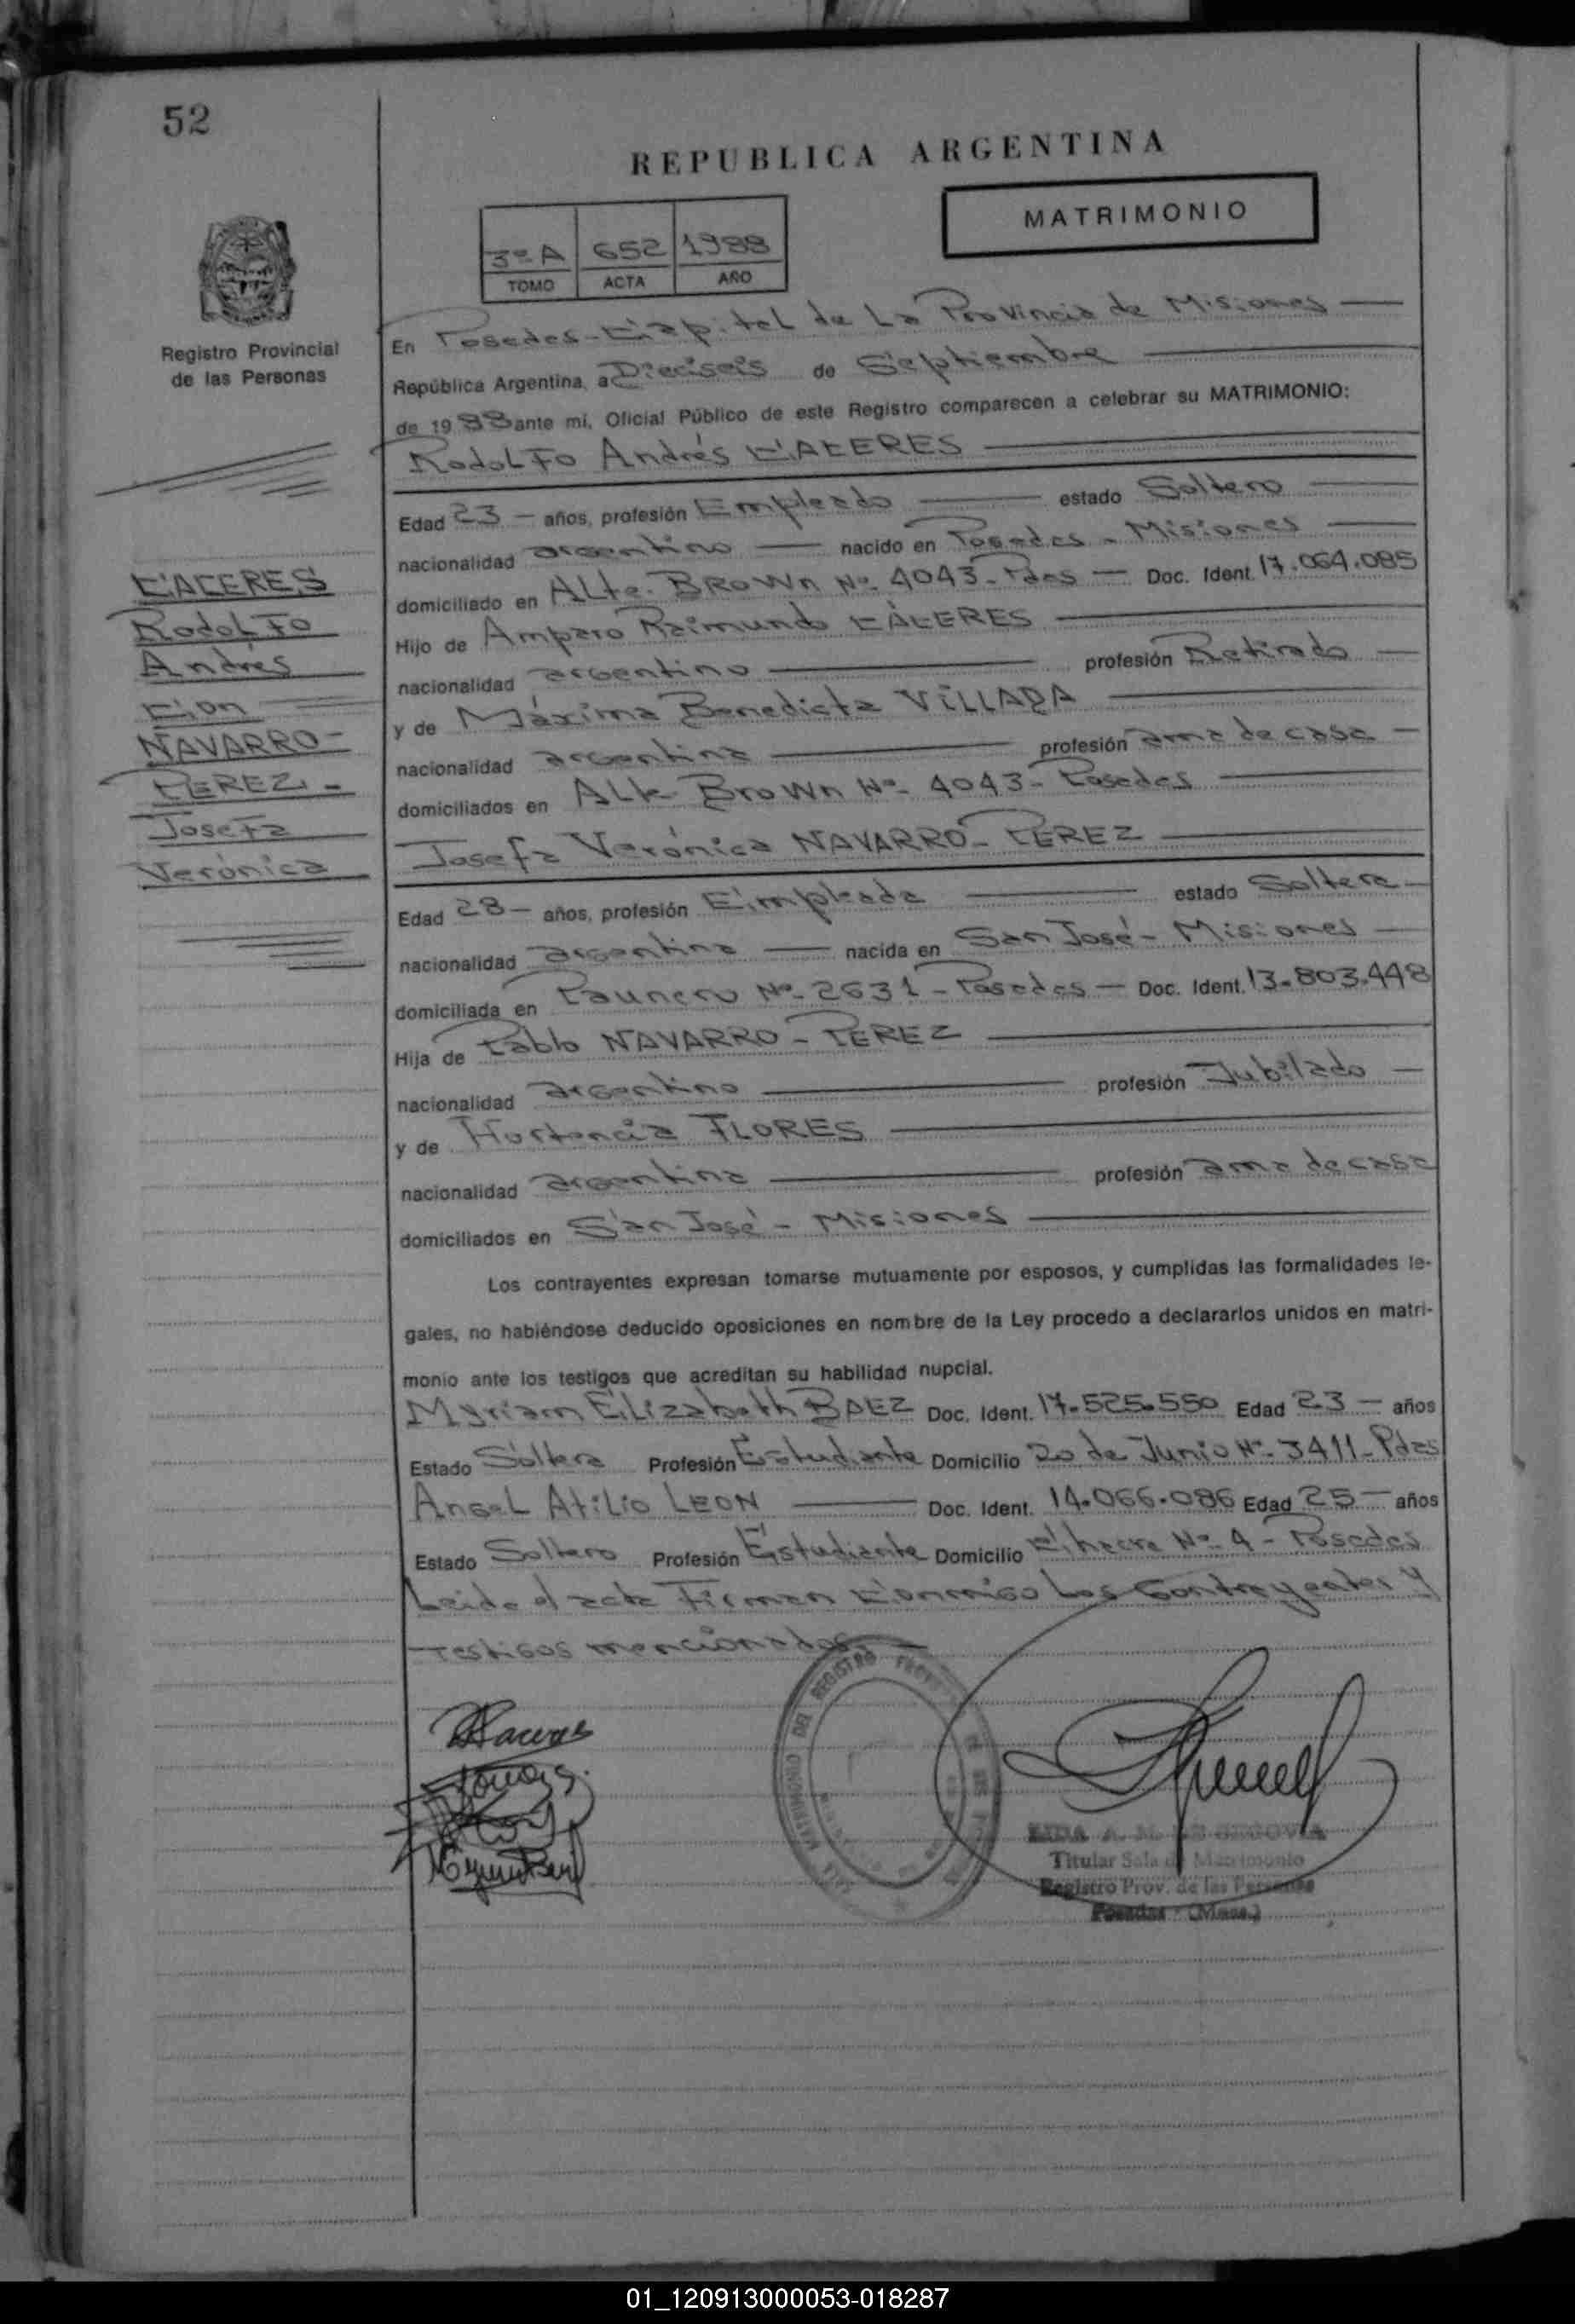 52
REPUBLICA ARGENTINA
MATRIMONIO
3º A 652 1988
TOMO ACTA AÑO
Registro Provincial
de las Personas
CACERES
Rodolfo
Andrés
Con
NAVARRO-
PEREZ.-
Josefa
Verónica
En Posadas-Capital de La Provincia de Misiones
República Argentina, a Dieciseis de Septiembre
de 1988 ante mí, Oficial Público de este Registro comparecen a celebrar su MATRIMONIO:
Rodolfo Andrés CACERES
Edad 23 - años, profesión Empleado estado Soltero
nacionalidad argentino nacido en Posadas - Misiones
domiciliado en Alte. Brown Nº 4043-Pdas - Doc. Ident. 17.064.085
Hijo de Amparo Raimundo CÁCERES
nacionalidad argentino profesión Retirado
y de Máxima Benedicta
nacionalidad argentina profesión ama de casa
domiciliados en Alte Brown Nº 4043- Posadas
Josefa Verónica NAVARRO- PEREZ
Edad 28 - años, profesión Empleada estado Soltera
nacionalidad argentina nacida en San José - Misiones
domiciliada en Paunero Nº 2631 - Posadas - Doc. Ident. 13.803.448
Hija de Pablo NAVARRO - PEREZ
nacionalidad argentino profesión Jubilado
y de Hortencia FLORES
nacionalidad argentina profesión ama de casa
domiciliados en San José - Misiones
Los contrayentes expresan tomarse mutuamente por esposos, y cumplidas las formalidades le-
gales, no habiéndose deducido oposiciones en nombre de la Ley procedo a declararlos unidos en matri-
monio ante los testigos que acreditan su habilidad nupcial.
Myriam Elizabeth BAEZ Doc. Ident. 17.525.550 Edad 23 - años
Estado Soltera Profesión Estudiante Domicilio 20 de Junio Nº 3411-Pdas
Angel Atilio LEON Doc. Ident. 14.066.086 Edad 25 - años
Estado Soltero Profesión Estudiante Domicilio Nº 4 - Posadas
Leida el acta Firman Conmigo Los Contrayentes Y
Testigos mencionados.
DEL REGISTRO
MATRIMONIO
A. M. DE SEGOVIA
Titular Sala de Matrimonio
Registro Prov. de las Personas
Posadas - (Mnes.)
01_120913000053-018287